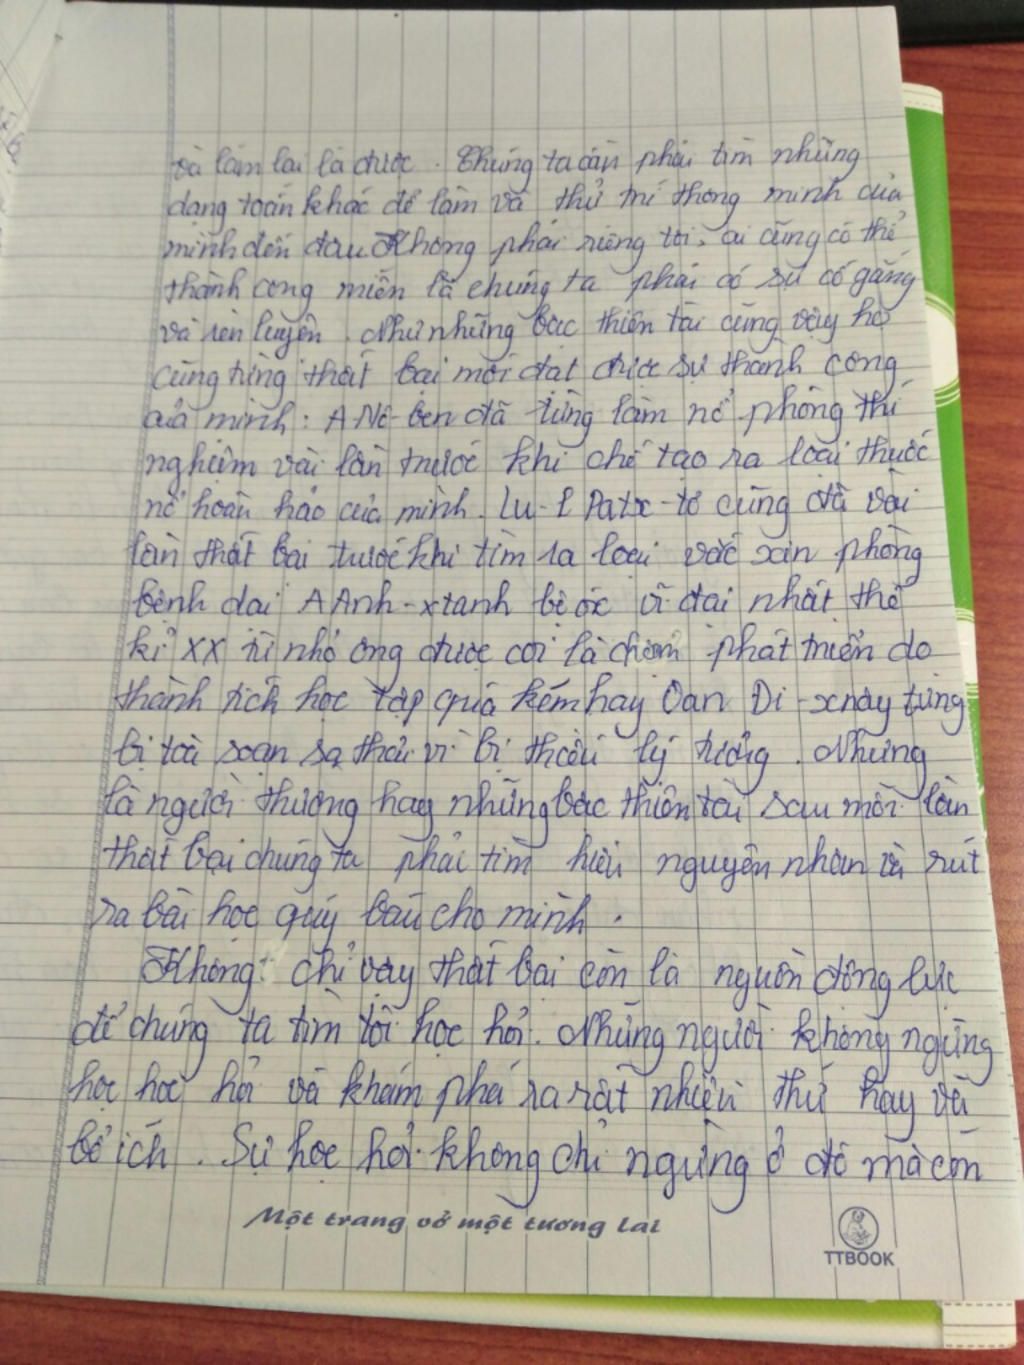 và làm lại là được. Chúng ta cần phải tìm những
dạng toán khác để làm và thử trí thông minh của
mình đến đâu. Không phải riêng tôi, ai cũng có thể
thành công miễn là chúng ta phải có sự cố gắng
và rèn luyện. Như những bậc thiên tài cũng vậy họ
cũng từng thất bại mới đạt được sự thành công
của mình: A Nô-ben đã từng làm nổ phòng thí
nghiệm vài lần trước khi chế tạo ra loại thuốc
nổ hoàn hảo của mình. Lu-I Patx-tơ cũng đã vài
lần thất bại trước khi tìm ra loại vắc xin phòng
bệnh dại A Anh-xtanh bộ óc vĩ đại nhất thế
kỉ XX từ nhỏ ông được coi là chậm phát triển do
thành tích học tập quá kém hay Oan Đi-xnây từng
bị toà soạn sa thải vì bị thiếu lý tưởng. Nhưng
là người thường hay những bậc thiên tài sau mỗi lần
thất bại chúng ta phải tìm hiểu nguyên nhân và rút
ra bài học quý báu cho mình.
Không chỉ vậy thất bại còn là nguồn động lực
để chúng ta tìm tòi học hỏi. Những người không ngừng
học học hỏi và khám phá ra rất nhiều thứ hay và
bổ ích. Sự học hỏi không chỉ ngừng ở đó mà còn
Một trang vở một tương lai
TTBOOK